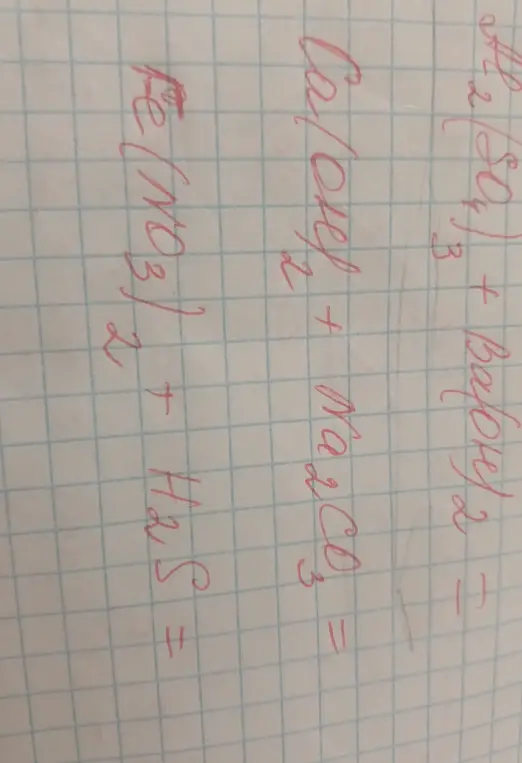 Al₂(SO₄)₃ + Ba(OH)₂ =
Ca(OH)₂ + Na₂CO₃ =
Fe(NO₃)₂ + H₂S =